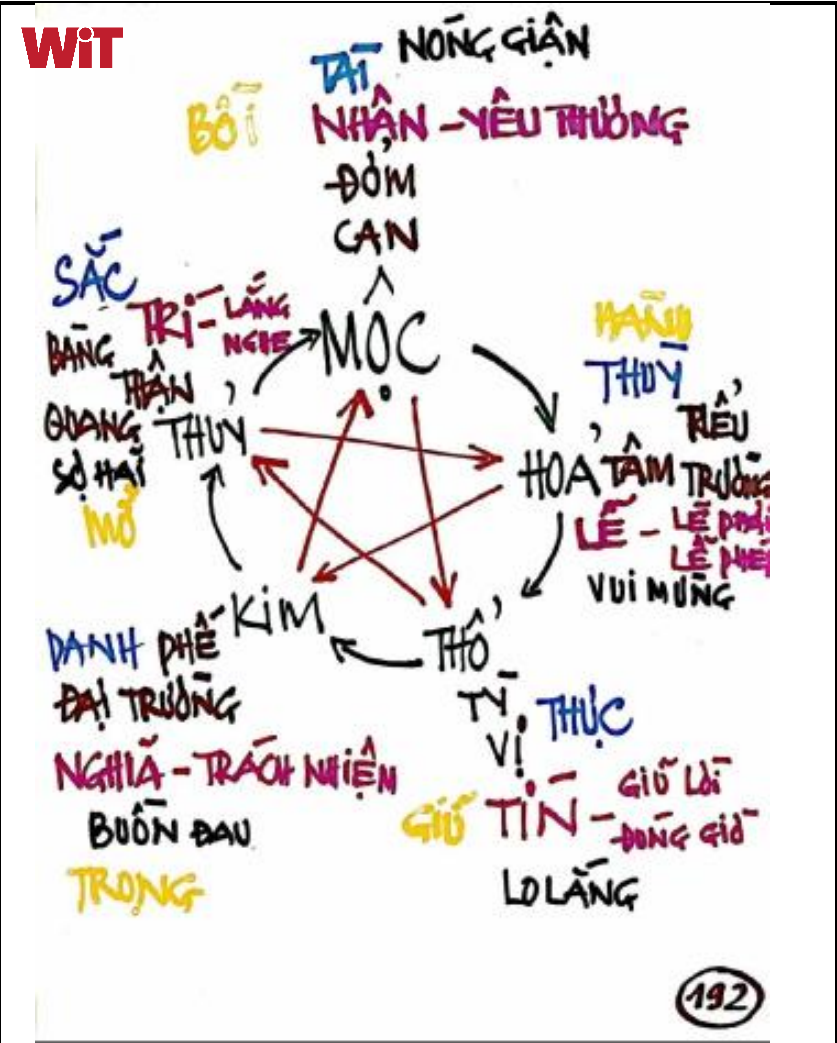 WiT
TÀI NÓNG GIẬN
BỒI NHÂN - YÊU THƯƠNG
ĐỞM
CAN
SẮC
TRÍ - LẮNG
NGHE
MỘC
HÀNH
BÀNG
THẬN
QUANG THỦY
SỢ HÃI
MỞ
THÙY
TIỂU
HOẢ TÂM TRƯỜNG
LỄ - LẼ PHẢI
LỄ PHÉP
VUI MỪNG
KIM
THỔ
DANH PHẾ
ĐẠI TRƯỜNG
TỲ
VỊ THỰC
NGHĨA - TRÁCH NHIỆM
GIỮ TÍN - GIỮ LỜI
ĐÚNG GIỜ
BUỒN ĐAU
LO LẮNG
TRỌNG
192